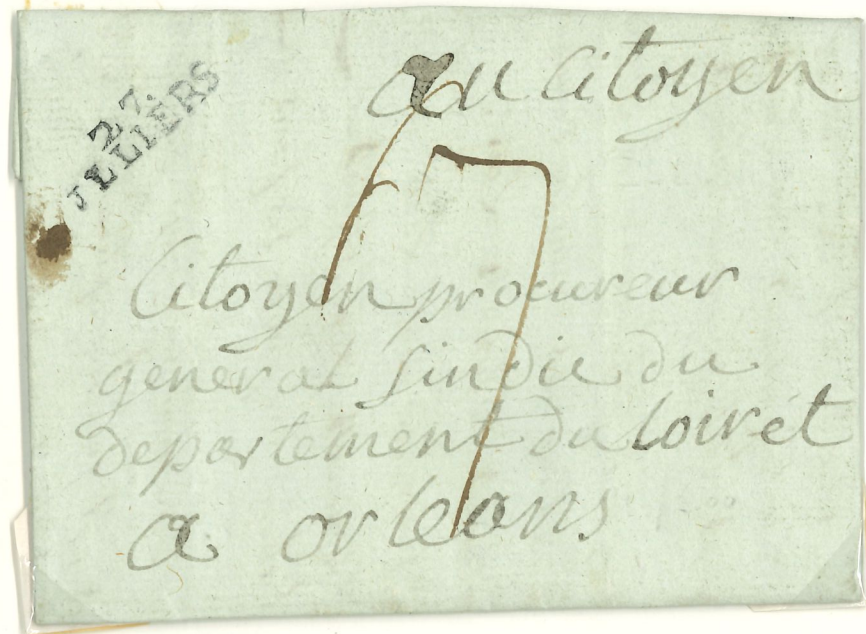 27.
JLLIERS
au Citoyen
7
Citoyen procureur
general sindic du
departement du loirét
a orleans